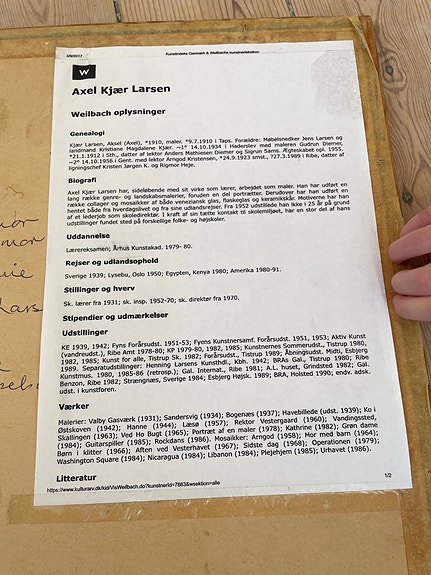 3/9/2017 Kunstindeks Danmark & Weilbachs kunstnerleksikon
W
Axel Kjær Larsen
Weilbach oplysninger
Genealogi
Kjær Larsen, Aksel (Axel), *1910, maler. *9.7.1910 i Taps. Forældre: Møbelsnedker Jens Larsen og
landmand Kristiane Magdalene Kjær. ~1° 14.10.1934 i Haderslev med maleren Gudrun Diemer,
*21.1.1912 i Sth., datter af lektor Anders Mathiesen Diemer og Sigrun Sams. Ægteskabet opl. 1955.
~2° 14.10.1956 i Gent. med lektor Arngod Kristensen, *24.9.1923 smst., †27.3.1989 i Ribe, datter af
ligningschef Kristen Jørgen K. og Rigmor Hage.
Biografi
Axel Kjær Larsen har, sideløbende med sit virke som lærer, arbejdet som maler. Han har udført en
lang række genre- og landskabsmalerier, foruden en del portrætter. Derudover har han udført en
række collager og mosaikker af både veneziansk glas, flaskeglas og keramikskår. Motiverne har han
hentet både fra hverdagslivet og fra sine udlandsrejser. Fra 1952 udstillede han ikke i 25 år på grund
af et lederjob som skoledirektør. I kraft af sin tætte kontakt til skolemiljøet, har en stor del af hans
udstillinger fundet sted på forskellige folke- og højskoler.
Uddannelse
Lærereksamen; Århus Kunstakad. 1979- 80.
Rejser og udlandsophold
Sverige 1939; Lysebu, Oslo 1950; Egypten, Kenya 1980; Amerika 1980-91.
Stillinger og hverv
Sk. lærer fra 1931; sk. insp. 1952-70; sk. direktør fra 1970.
Stipendier og udmærkelser
Udstillinger
KE 1939, 1942; Fyns Forårsudst. 1951-53; Fyens Kunstnersamf. Forårsudst. 1951, 1953; Aktiv Kunst
(vandreudst.), Ribe Amt 1978-80; KP 1979-80, 1982, 1985; Kunstnernes Sommerudst., Tistrup 1980,
1982, 1985; Kunst for alle, Tistrup Sk. 1982; Forårsudst., Tistrup 1989; Åbningsudst. Midti, Esbjerg
1989. Separatudstillinger: Henning Larsens Kunsthdl., Kbh. 1942; BRAs Gal., Tistrup 1980; Ribe
Kunstmus. 1980, 1985-86 (retrosp.); Gal. Internat., Ribe 1981; A.L. huset, Grindsted 1982; Gal.
Benzon, Ribe 1982; Strængnæs, Sverige 1984; Esbjerg Højsk. 1989; BRA, Holsted 1990; endv. adsk.
udst. i kunstforen.
Værker
Malerier: Valby Gasværk (1931); Sandersvig (1934); Bogenæs (1937); Havebillede (udst. 1939); Ko i
Østskoven (1942); Hanne (1944); Læsø (1957); Rektor Vestergaard (1960); Vandingssted,
Skallingen (1963); Ved Ho Bugt (1965); Portræt af en maler (1978); Kathrine (1982); Grøn dame
(1984); Guitarspiller (1985); Rockdans (1986). Mosaikker: Arngod (1958); Mor med barn (1964);
Børn i klitter (1966); Aften ved Vesterhavet (1967); Sidste dag (1968); Operationen (1979);
Washington Square (1984); Nicaragua (1984); Libanon (1984); Plejehjem (1985); Urhavet (1986).
Litteratur
https://www.kulturarv.dk/kid/VisWeilbach.do?kunstnerId=7883&wsektion=alle 1/2